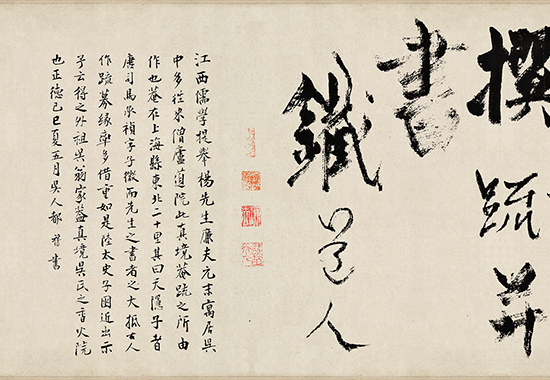 撰疏并
書
鐵道人
江西儒學提舉楊先生廉夫元末寓居吳
中多往來僧廬道院此真境菴疏之所由
作也菴在上海縣東北二十里其曰天隱子者
唐司馬承禎字子微而先生之書者之大抵古人
作疏募緣率多借重如是陸太史子囦近出示
予云得之外祖吳翁家蓋真境吳氏之香火院
也正德己巳夏五月吳人都穆書